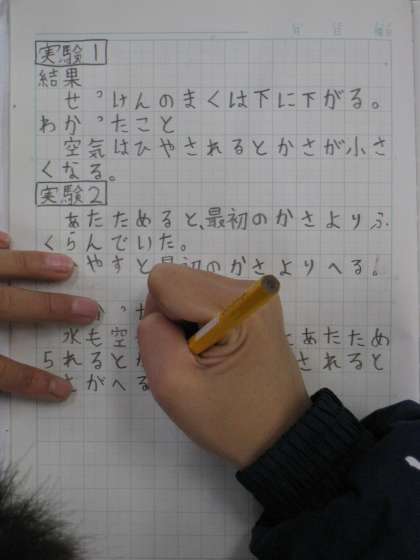 月 日
実験1
結果
せっけんのまくは下に下がる。
わかったこと
空気はひやされるとかさが小さ
くなる。
実験2
あたためると、最初のかさよりふ
くらんでいた。
やすと最初のかさよりへる。
水も空 あたため
られると されると
がへる